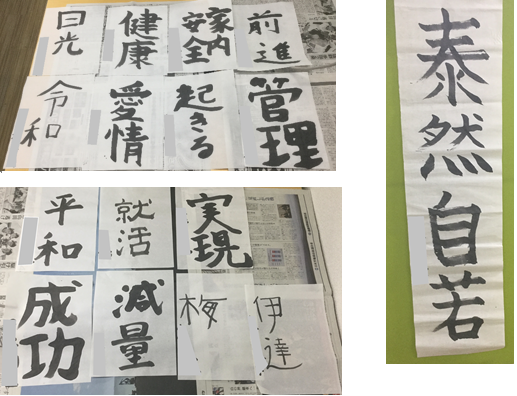 日光
健康
家内
安全
前進
令和
愛情
起きる
管理
平和
就活
実現
成功
減量
梅
伊達
泰然自若